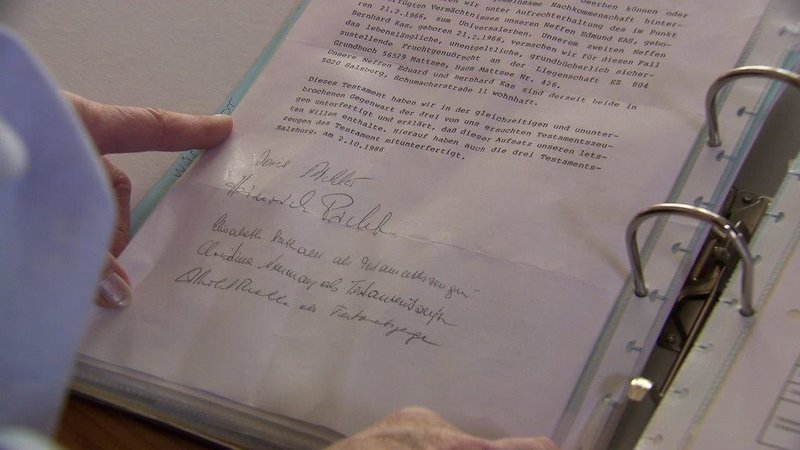 gemeinsame Nachkommenschaft hinter-
beerben können oder
ren wir unter Aufrechterhaltung des im Punkt
fügten Vermächtnisses unseren Neffen Edmund KAS, gebo-
ren 21.2.1966, zum Universalerben. Unserem zweiten Neffen
Bernhard Kas, geboren 21.2.1966, vermachen wir für diesen Fall
das lebenslängliche, unentgeltliche, grundbücherlich sicher-
zustellende Fruchtgenußrecht an der Liegenschaft EZ 804
Grundbuch 56529 Mattsee, Haus Mattsee Nr. 426.
Unsere Neffen Eduard und Bernhard Kas sind derzeit beide in
5020 Salzburg, Schumacherstraße 11 wohnhaft.
Dieses Testament haben wir in der gleichzeitigen und ununter-
brochenen Gegenwart der drei von uns ersuchten Testamentszeu-
gen unterfertigt und erklärt, daß dieser Aufsatz unseren letz-
ten Willen enthalte. Hierauf haben auch die drei Testaments-
zeugen das Testament mitunterfertigt.
Salzburg, am 2.10.1986
Heinrich
Elisabeth als Testamentszeugin
Christine als Testamentszeugin
als Testamentszeuge